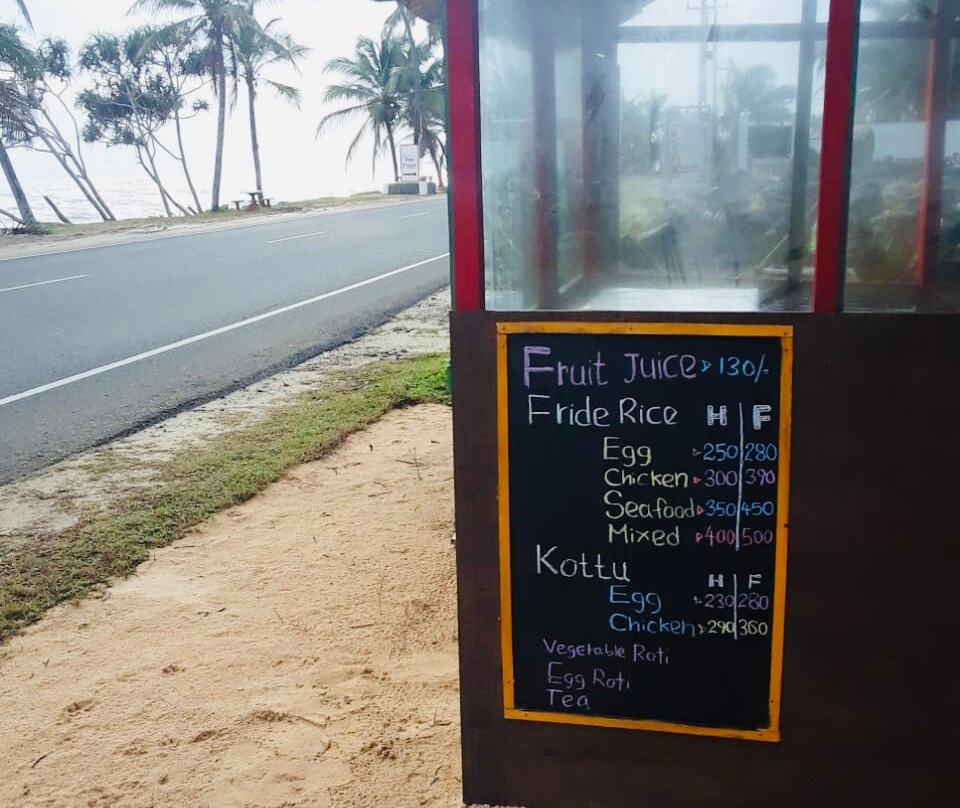 Fruit Juice 130/-
Fride Rice H F
Egg 250 280
Chicken 300 390
Seafood 350 450
Mixed 400 500
Kottu H F
Egg 230 280
Chicken 290 360
Vegetable Roti
Egg Roti
Tea